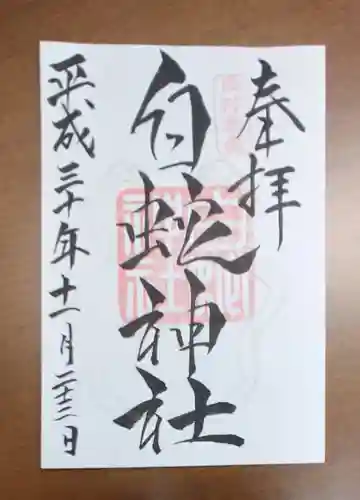 奉拝
白蛇神社
平成三十年十一月二十三日